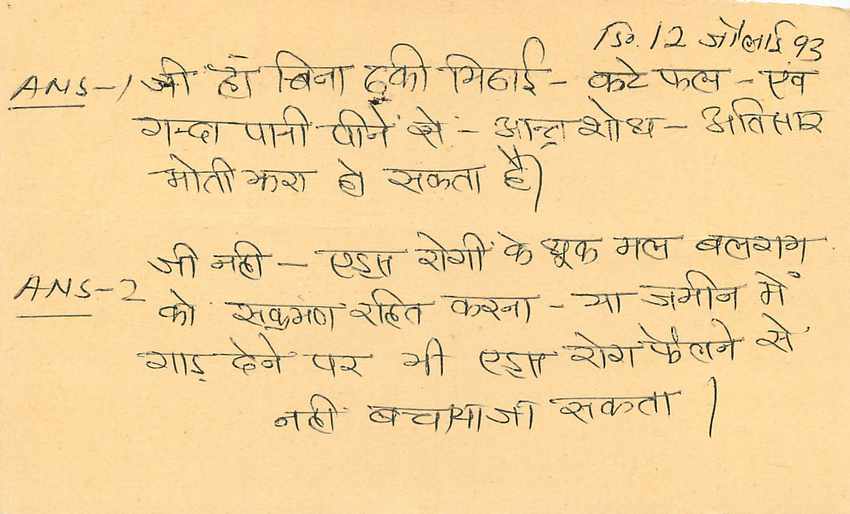 दि. 12 जौलाई 93
ANS-1 जी हाँ बिना ढकी मिठाई - कटे फल - एवं
गन्दा पानी पीने से - आन्त्रा शोध - अतिसार
मोती झरा हो सकता है।
ANS-2 जी नही - एड्स रोगी के थूक मल बलगम
को संक्रमण रहित करना - या जमीन में
गाड़ देने पर भी एड्स रोग फैलने से
नही बचाया जा सकता।